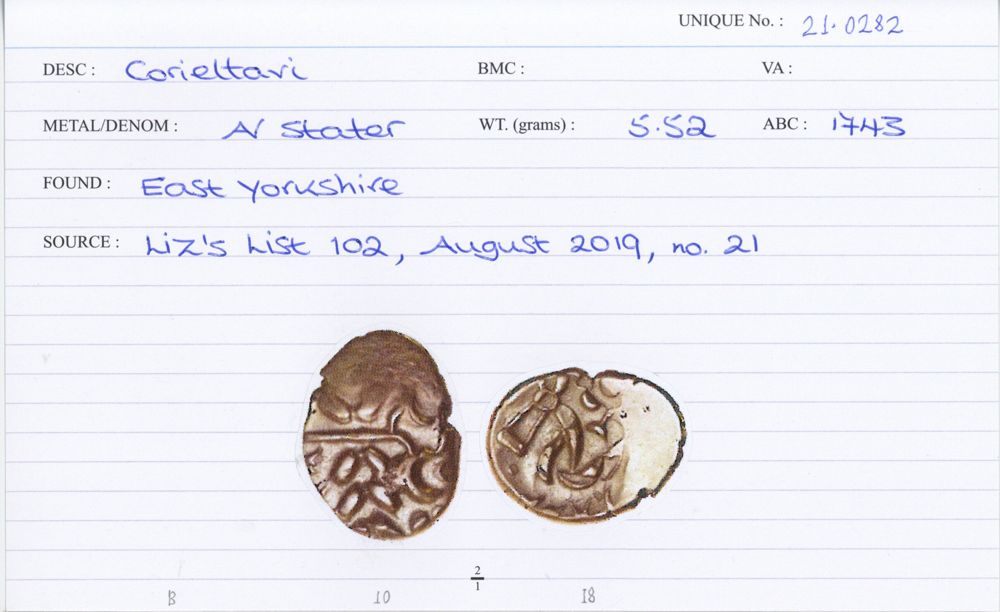 UNIQUE No. : 21.0282
DESC : Corieltavi BMC : VA :
METAL/DENOM : AV Stater WT. (grams) : 5.52 ABC : 1743
FOUND : East Yorkshire
SOURCE : Liz's List 102, August 2019, no. 21
2
1
B 10 18